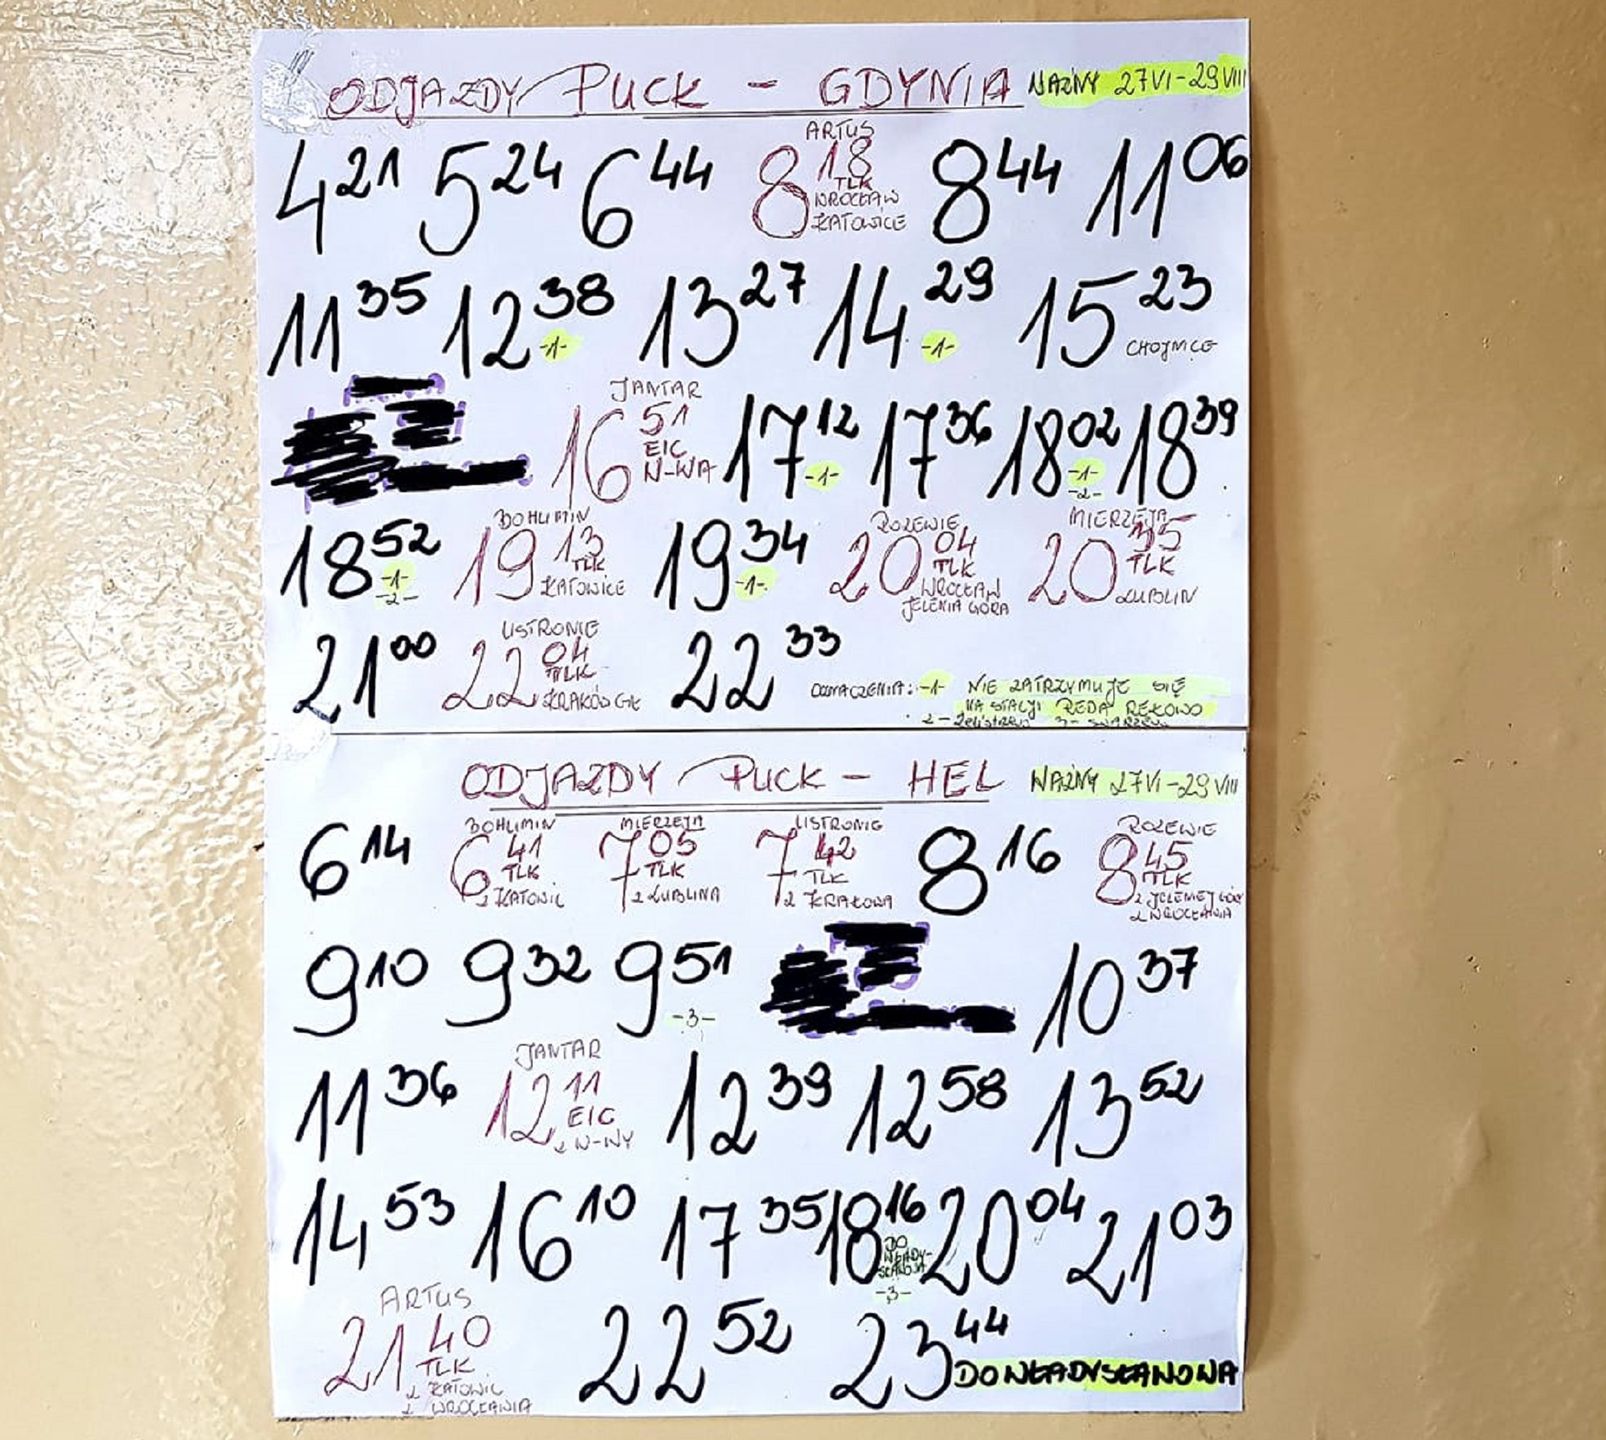 ODJAZDY PUCK - GDYNIA WAŻNY 27VI-29VIII
4 21 5 24 6 44 ARTUS 8 18 TLK WROCŁAW KATOWICE 8 44 11 06
11 35 12 38 -1- 13 27 14 29 -1- 15 23 CHOJNICE
JANTAR 16 51 EIC W-WA 17 12 -1- 17 36 18 02 -1- -2- 18 39
18 52 -1- -2- BOHUMIN 19 13 TLK KATOWICE 19 34 -1- ROZEWIE 20 04 TLK WROCŁAW JELENIA GÓRA MIERZEJA 20 35 TLK LUBLIN
21 00 USTRONIE 22 04 TLK KRAKÓW GŁ 22 33 OZNACZENIA: -1- NIE ZATRZYMUJE SIĘ
NA STACJI REDA REKOWO
2- Żelistrzewo 3- SWARZEWO
ODJAZDY PUCK - HEL WAŻNY 27VI-29VIII
6 14 BOHUMIN 6 41 TLK Z KATOWIC MIERZEJA 7 05 TLK Z LUBLINA USTRONIE 7 42 TLK Z KRAKOWA 8 16 ROZEWIE 8 45 TLK Z JELENIEJ GÓRY Z WROCŁAWIA
9 10 9 32 9 51 -3- 10 37
11 36 JANTAR 12 11 EIC Z W-WY 12 39 12 58 13 52
14 53 16 10 17 35 18 16 DO WŁADY-SŁAWOWA -3- 20 04 21 03
ARTUS 21 40 TLK Z KATOWIC Z WROCŁAWIA 22 52 23 44 DO WŁADYSŁAWOWA